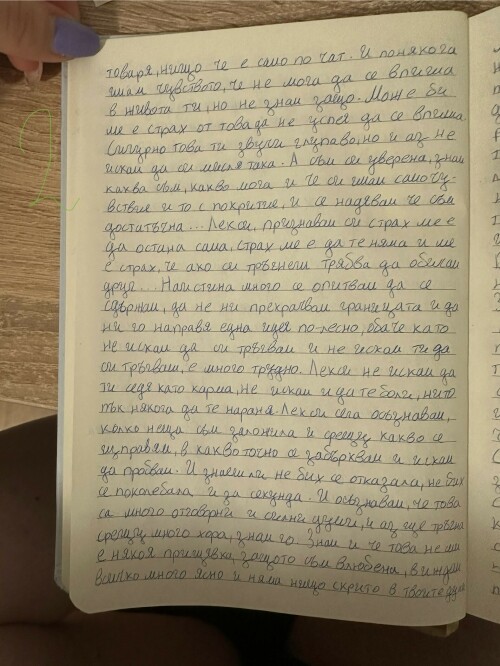 товаря, нищо че е само по чат. И понякога
имам чувството, че не мога да се впиша
в живота ти, но не знам защо. Може би
ме е страх от това да не успея да се впиша
Сигурно това ти звучи глупаво, но и аз не
искам да си мисля така. А съм си уверена, знам
каква съм, какво мога и че си имам самочу-
вствие и то с покритие, и се надявам че съм
достатъчна... Лекси, признавам си страх ме е
да остана сама, страх ме е да те няма и ме
е страх, че ако си тръгнеш трябва да обичам
друг... Наистина много се опитвам да се
сдържам, да не ни прекрачвам границата и да
ни го направя една идея по-лесно, обаче като
не искам да си тръгвам и не искам ти да
си тръгваш, е много трудно. Лекси не искам да
ти седя като карма, не искам и да те боли, нито
пък някога да те нараня. Лекси сега осъзнавам,
колко неща съм заложила и срещу какво се
изправям, в какво точно се забърквам и искам
да пробвам. И знаеш ли не бих се отказала, не бих
се поколебала и за секунда. И осъзнавам, че това
са много отговорни и силни думи, и аз ще тръгна
срещу много хора, знам го. Знам и че това не ми
е някоя прищявка, защото съм влюбена, виждам
всичко много ясно и няма нищо скрито в твоите